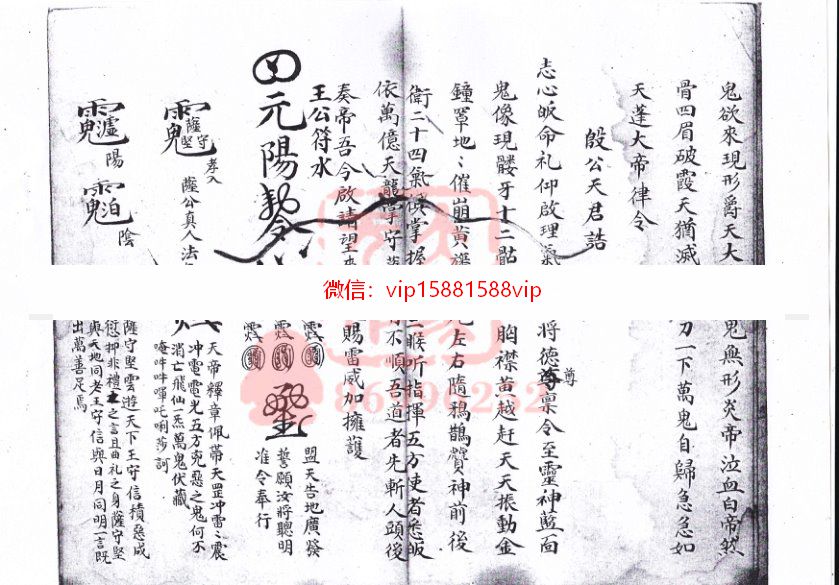 鬼欲來現形爵天大
鬼無形炎帝泣血白帝然
骨四眉破霞天猶滅
刀一下萬鬼自歸急急如
天蓬大帝律令
殷公天君誥
志心皈命礼仰啟理氣
將德尊禀令至靈神藍面
尊
鬼像現髏牙十二骷
胸襟黃越赶天天振動金
鐘罩地〻催崩黃旛
左右隨鴉鵲贊神前後
衛二十四氣侯掌握
三睺听指揮五方使者悉皈
依萬億天龍掌守
不順吾道者先斬人頭後
奏帝吾今啟請望來
賜雷威加擁護
王公符水
元陽
盟天告地廣發
誓願汝將聰明
准令奉行
薩守堅
孝入
薩公真人法
天帝釋章佩帶天罡冲雷〻震
冲電電光五方兇惡之鬼何不
消亡飛仙一炁萬鬼伏藏
唵吽吽啤吒唎莎訶
陽
陰
薩守堅雲遊天下王守信積惡咸
愆抑非禮之言且由礼之身薩守堅
與天地同老王守信與日月同明一言既
出萬善足焉
微信：vip15881588vip